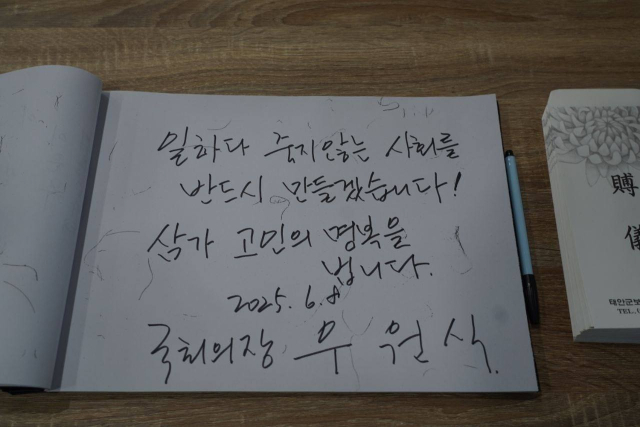 일하다 죽지않는 사회를
반드시 만들겠습니다!
삼가 고인의 명복을
빕니다.
2025. 6. 8
국회의장 우 원 식.
賻
儀
태안군보
TEL.